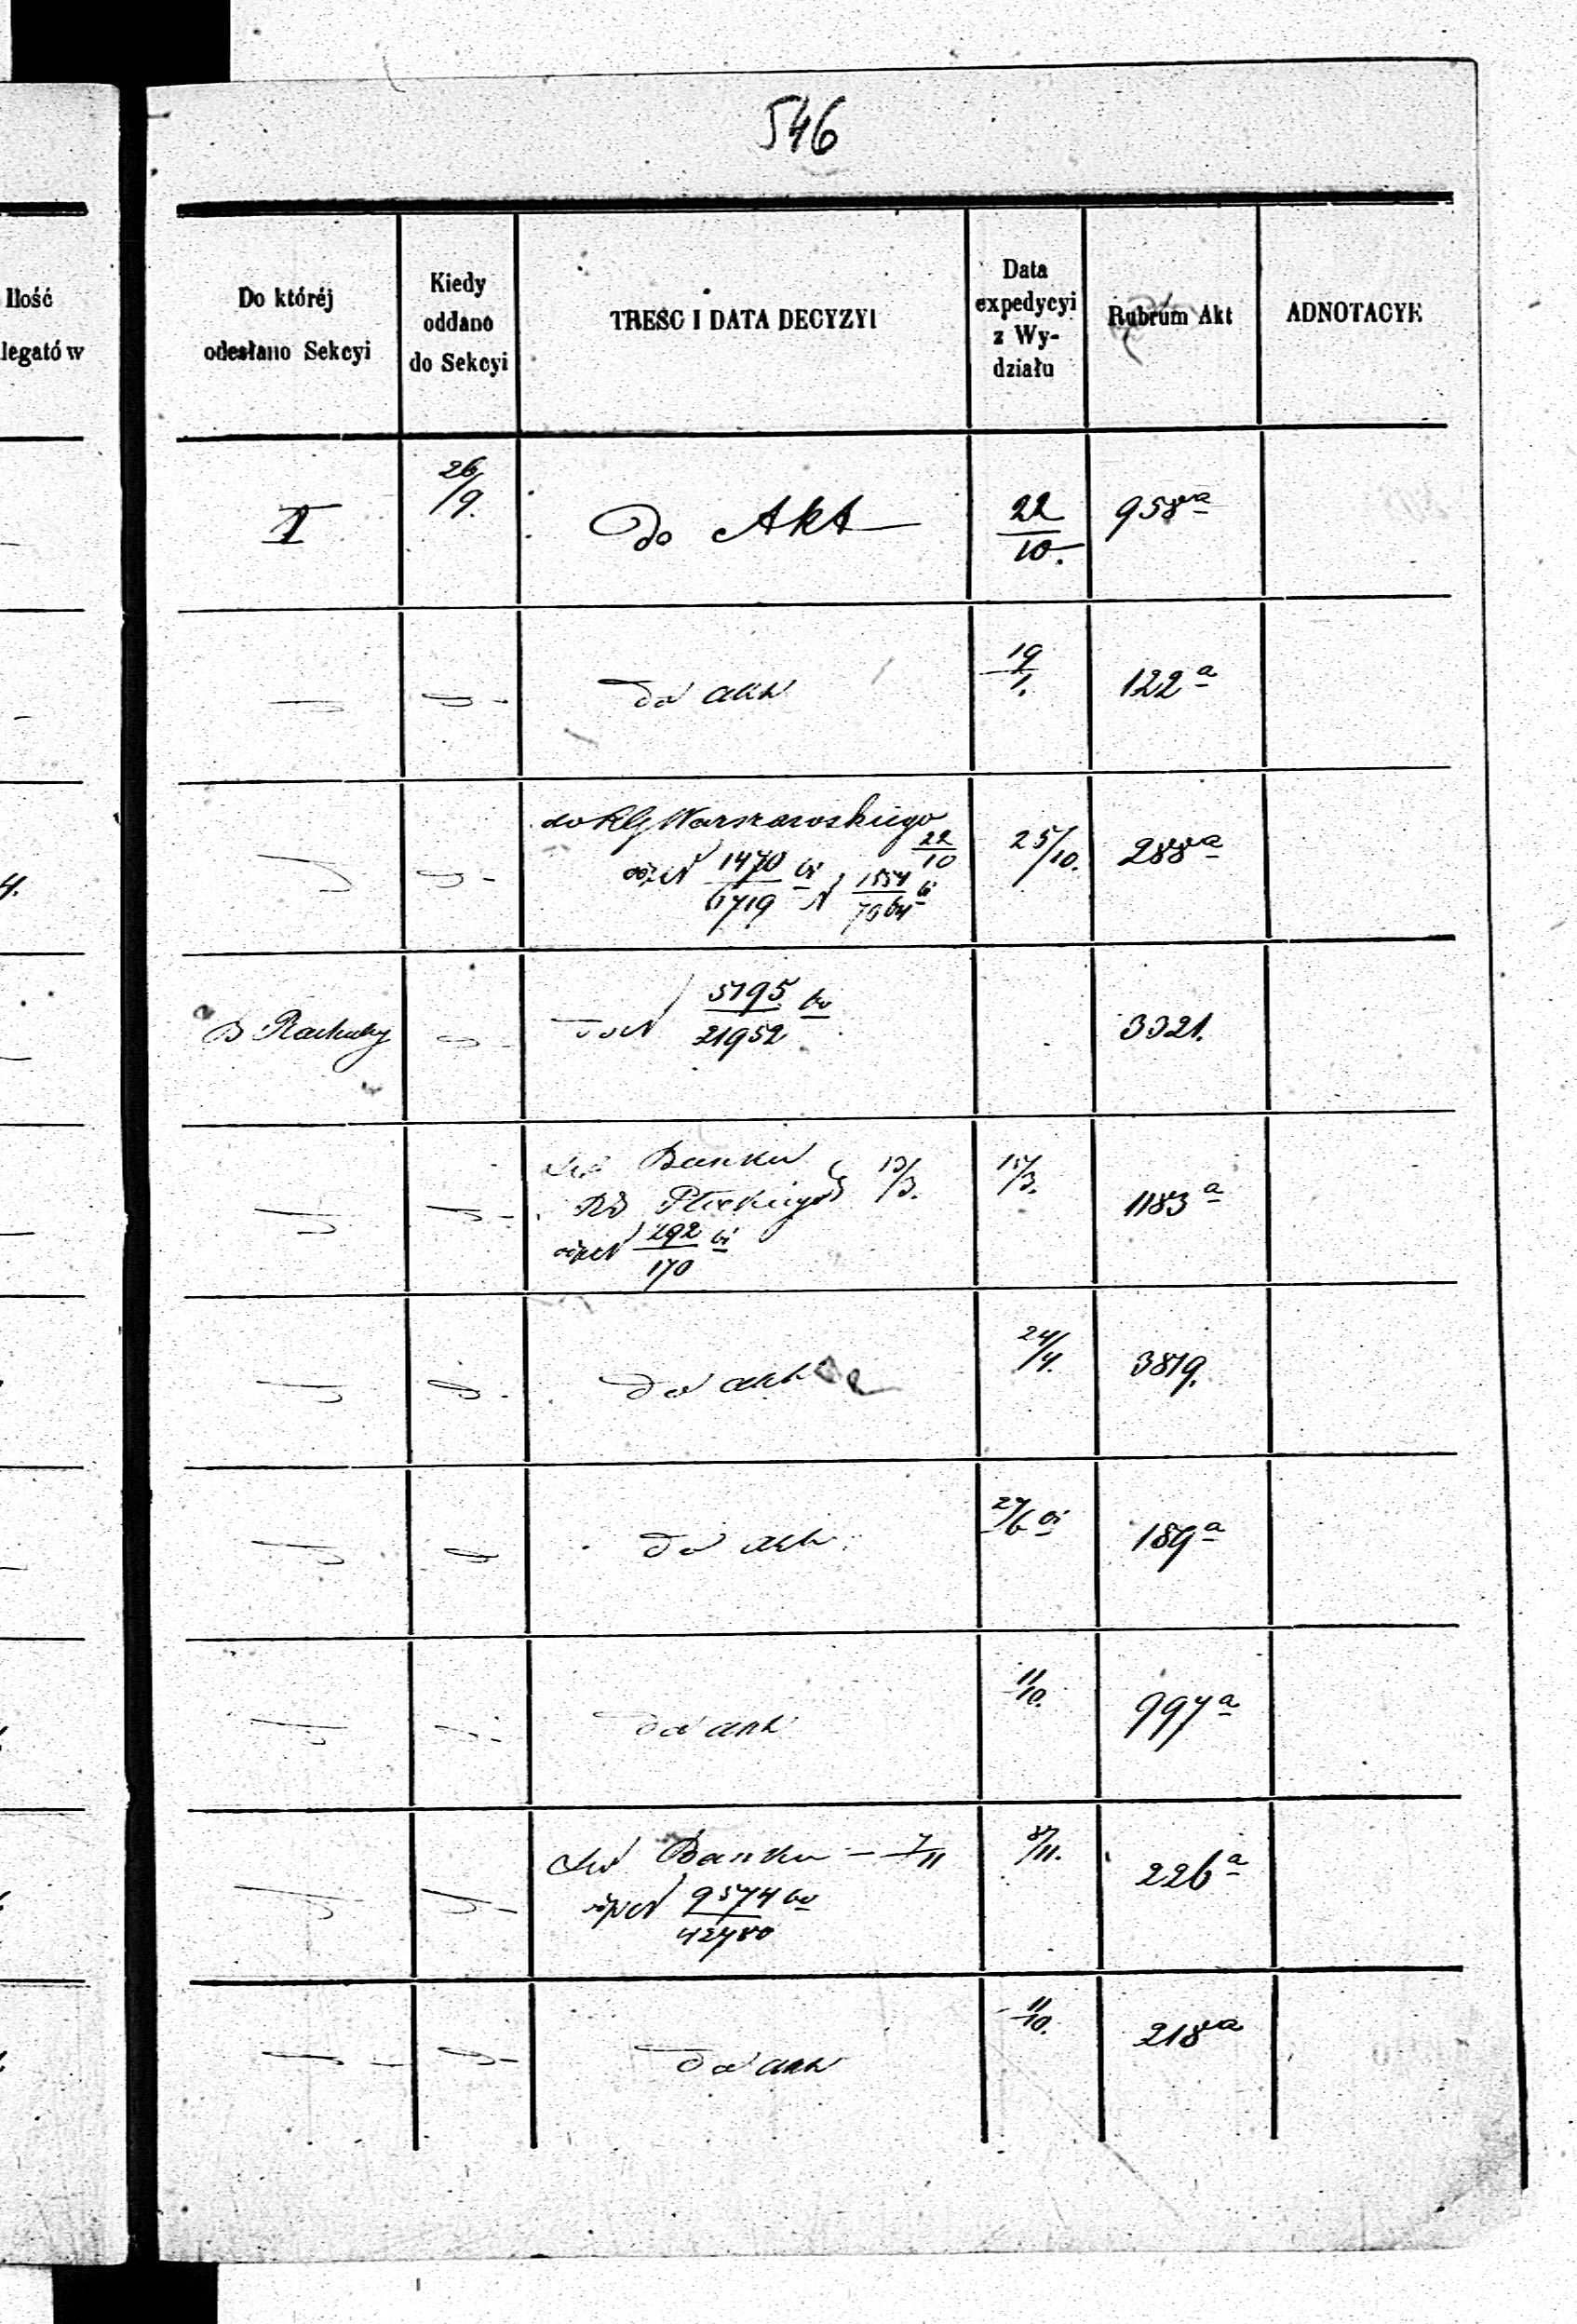 546
Ilość
legatów
Do któréj
odesłano Sekcyi
Kiedy
oddano
do Sekcyi
TREŚĆ I DATA DECYZYI
Data
expedycyi
z Wy-
działu
Rubrum Akt
ADNOTACYE
I
26/9.
Do Akt
22/10.
958 a
do akt
19/1.
122 a
do RG Warszawskiego 22/10
1470/6719
1554/7964
25/10.
288 a
B Rachuby
do N 5795/21952
3321.
Do Banku
RG Płockiego 13/3.
292/170
15/3.
1183 a
do akt
24/4.
3819.
do akt
27/6
189 a
do akt
11/10.
997 a
do Banku — 7/11
9574/42780
8/11.
226 a
do akt
11/10.
218 a